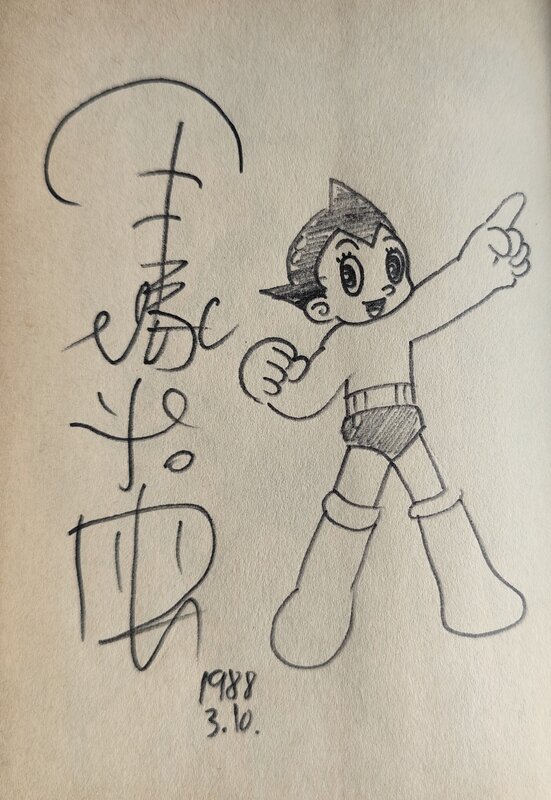 手塚治虫
1988
3.10.